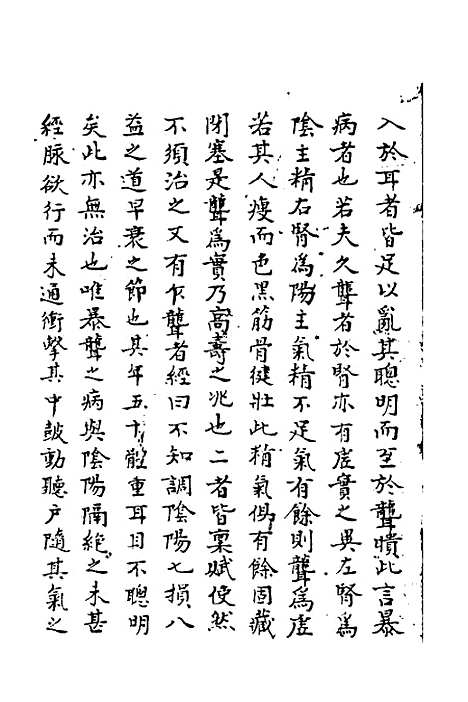 入於耳者皆足以亂其聰明而至於聾聵此言暴
病者也若夫久聾者於腎亦有虛實之異左腎為
陰主精右腎為陽主氣精不足氣有餘則聾為虛
若其人瘦而色黑筋骨健壯此精氣俱有餘固藏
閉塞是聾為實乃高壽之兆也二者皆稟賦使然
不須治之又有乍聾者經曰不知調陰陽七損八
益之道早衰之節也其年五十體重耳目不聰明
矣此亦無治也唯暴聾之病與陰陽隔絶之未甚
經脉欲行而未通衝擊其中鼓動聽户隨其氣之